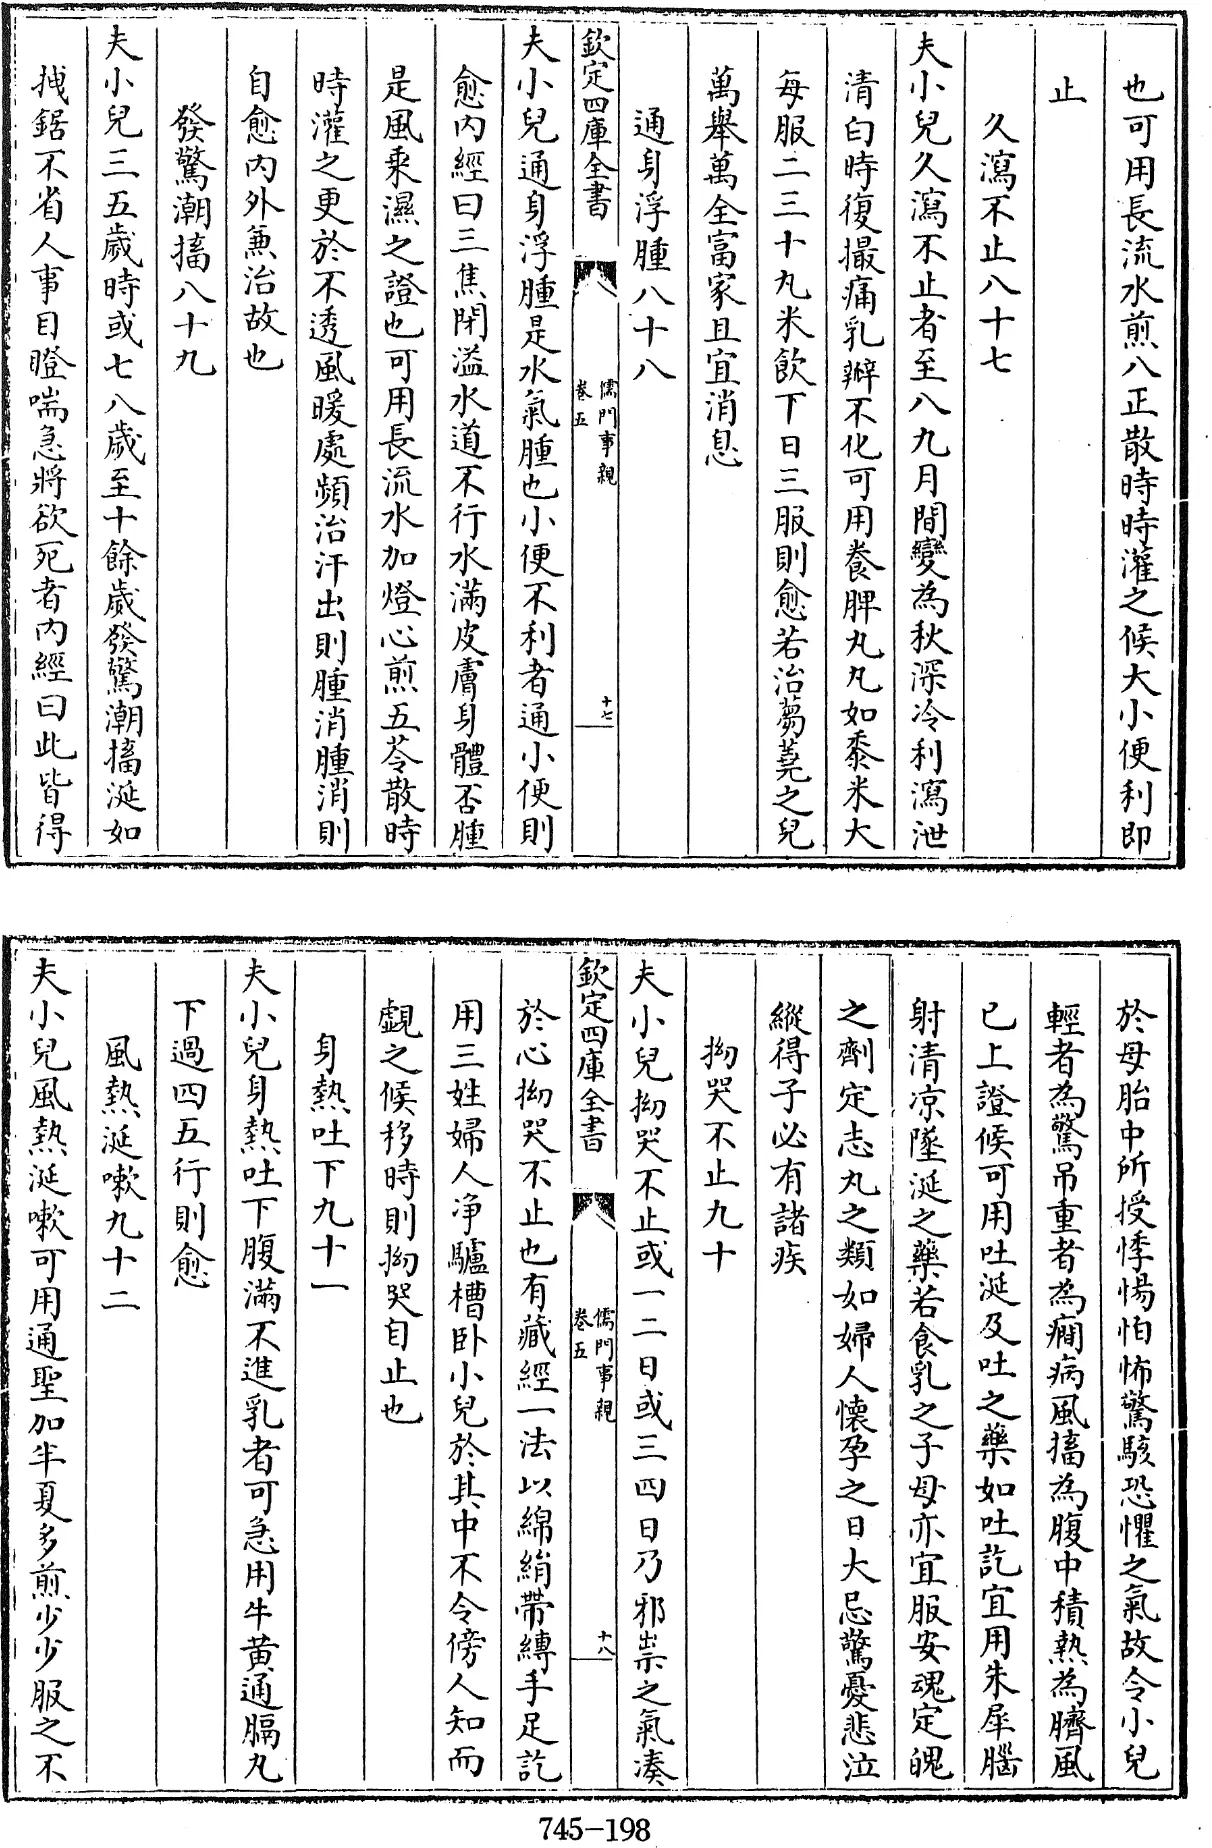 也可用長流水煎八正散時時灌之候大小便利即
止
久瀉不止八十七
夫小兒久瀉不止者至八九月間變為秋深冷利瀉泄
清白時復撮痛乳瓣不化可用養脾丸丸如黍米大
每服二三十丸米飲下日三服則愈若治蒭蕘之兒
萬舉萬全富家且宜消息
通身浮腫八十八
欽定四庫全書
儒門事親
卷五
十七
夫小兒通身浮腫是水氣腫也小便不利者通小便則
愈内經曰三焦閉溢水道不行水滿皮膚身體否腫
是風乘濕之證也可用長流水加燈心煎五苓散時
時灌之更於不透風暖處頻治汗出則腫消腫消則
自愈内外兼治故也
發驚潮搐八十九
夫小兒三五歲時或七八歲至十餘歲發驚潮搐涎如
拽鋸不省人事目瞪喘急將欲死者内經曰此皆得
於母胎中所授悸惕怕怖驚駭恐懼之氣故令小兒
輕者為驚吊重者為癎病風搐為腹中積熱為臍風
已上證候可用吐涎及吐之藥如吐訖宜用朱犀腦
射清凉墜涎之藥若食乳之子母亦宜服安魂定魄
之劑定志丸之類如婦人懷孕之日大忌驚憂悲泣
縱得子必有諸疾
拗哭不止九十
夫小兒拗哭不止或一二日或三四日乃邪祟之氣湊
欽定四庫全書
儒門事親
卷五
十八
於心拗哭不止也有藏經一法以綿絹帶縛手足訖
用三姓婦人净驢槽卧小兒於其中不令傍人知而
覷之候移時則拗哭自止也
身熱吐下九十一
夫小兒身熱吐下腹滿不進乳者可急用牛黄通膈丸
下過四五行則愈
風熱涎嗽九十二
夫小兒風熱涎嗽可用通聖加半夏多煎少少服之不
745-198